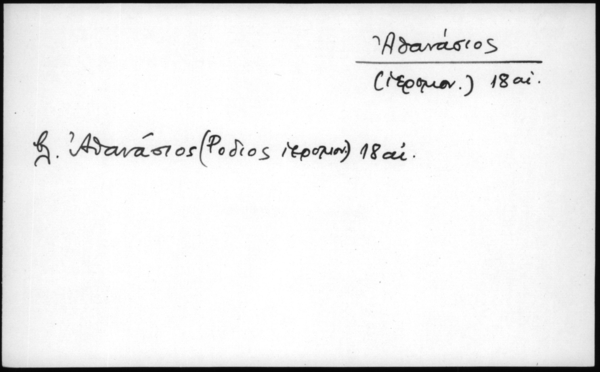 Ἀθανάσιος
(ἱερομον.) 18 αἰ.
βλ. Ἀθανάσιος (Ρόδιος ἱερομον.) 18 αἰ.